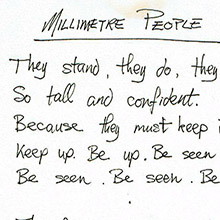 Millimetre People
They stand, they do, they
So tall and confident.
Because they must keep
Keep up. Be up. Be seen
Be seen. Be seen. Be